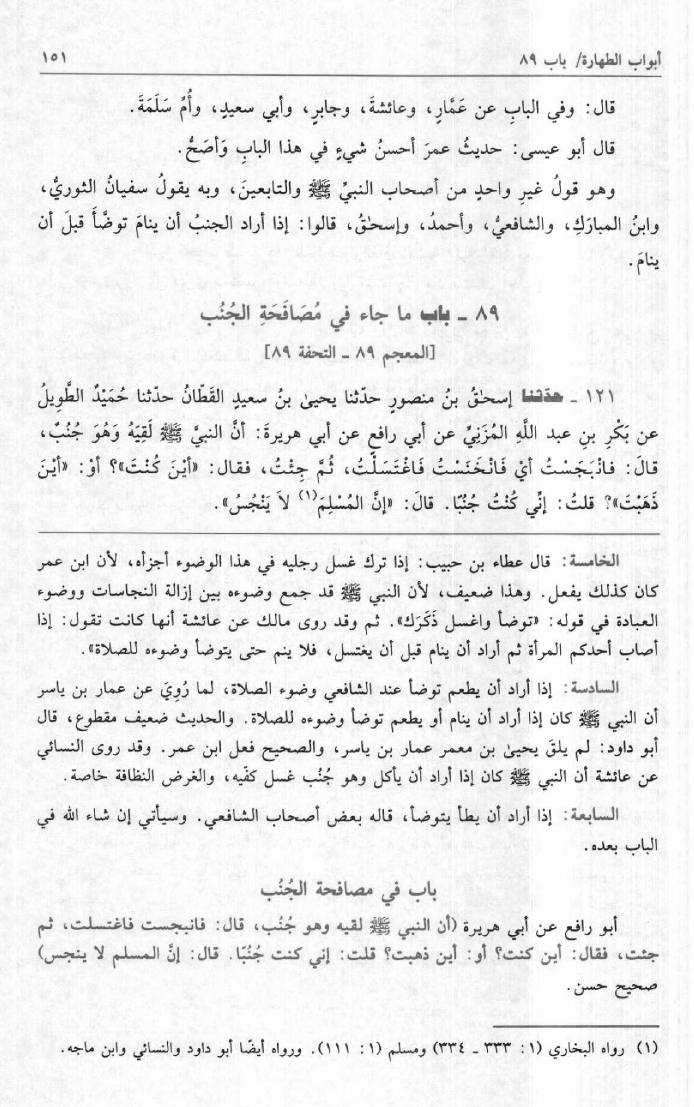 أبواب الطهارة/ باب ٨٩
١٥١
قال: وفي البابِ عن عَمَّارٍ، وعائشةَ، وجابرٍ، وأبي سعيدٍ، وأُمِّ سَلَمَةَ.
قال أبو عيسى: حديثُ عمرَ أحسنُ شيءٍ في هذا البابِ وَأَصَحُّ.
وهو قولُ غيرِ واحدٍ من أصحاب النبيِّ ﷺ والتابعينَ، وبه يقولُ سفيانُ الثوريُّ،
وابنُ المبارَكِ، والشافعيُّ، وأحمدُ، وإسحٰقُ، قالوا: إذا أراد الجنبُ أن ينامَ توضَّأَ قبلَ أن
ينامَ.
٨٩ ـ باب ما جاء في مُصَافَحَةِ الجُنُب
[المعجم ٨٩ ـ التحفة ٨٩]
١٢١ ـ حدّثنا إسحٰقُ بنُ منصورٍ حدّثنا يحيىٰ بنُ سعيدٍ القَطّانُ حدّثنا حُمَيْدٌ الطَّوِيلُ
عن بَكْرِ بنِ عبد اللَّهِ المُزَنِيِّ عن أبي رافعٍ عن أبي هريرةَ: أنَّ النبيَّ ﷺ لَقِيَهُ وَهُوَ جُنُبٌ،
قالَ: فانْبَجَسْتُ أيْ فَانْخَنَسْتُ فَاغْتَسَلْتُ، ثُمَّ جِئْتُ، فقال: «أَيْنَ كُنْتَ»؟ أوْ: «أَيْنَ
ذَهَبْتَ»؟ قلتُ: إنِّي كُنْتُ جُنُبًا. قالَ: «إنَّ المُسْلِمَ(١) لاَ يَنْجُسُ».
الخامسة: قال عطاء بن حبيب: إذا ترك غسل رجليه في هذا الوضوء أجزأه، لأن ابن عمر
كان كذلك يفعل. وهذا ضعيف، لأن النبي ﷺ قد جمع وضوءه بين إزالة النجاسات ووضوء
العبادة في قوله: «توضأ واغسل ذَكَرَك». ثم وقد روى مالك عن عائشة أنها كانت تقول: إذا
أصاب أحدكم المرأة ثم أراد أن ينام قبل أن يغتسل، فلا ينم حتى يتوضأ وضوءه للصلاة».
السادسة: إذا أراد أن يطعم توضأ عند الشافعي وضوء الصلاة، لما رُوِيَ عن عمار بن ياسر
أن النبي ﷺ كان إذا أراد أن ينام أو يطعم توضأ وضوءه للصلاة. والحديث ضعيف مقطوع، قال
أبو داود: لم يلقَ يحيىٰ بن معمر عمار بن ياسر، والصحيح فعل ابن عمر. وقد روى النسائي
عن عائشة أن النبي ﷺ كان إذا أراد أن يأكل وهو جُنُب غسل كفّيه، والغرض النظافة خاصة.
السابعة: إذا أراد أن يطأ يتوضأ، قاله بعض أصحاب الشافعي. وسيأتي إن شاء الله في
الباب بعده.
باب في مصافحة الجُنُب
أبو رافع عن أبي هريرة (أن النبي ﷺ لقيه وهو جُنُب، قال: فانبجست فاغتسلت، ثم
جئت، فقال: أين كنت؟ أو: أين ذهبت؟ قلت: إني كنت جُنُبًا. قال: إنَّ المسلم لا ينجس)
صحيح حسن.
(١) رواه البخاري (١: ٣٣٣ ـ ٣٣٤) ومسلم (١: ١١١). ورواه أيضًا أبو داود والنسائي وابن ماجه.